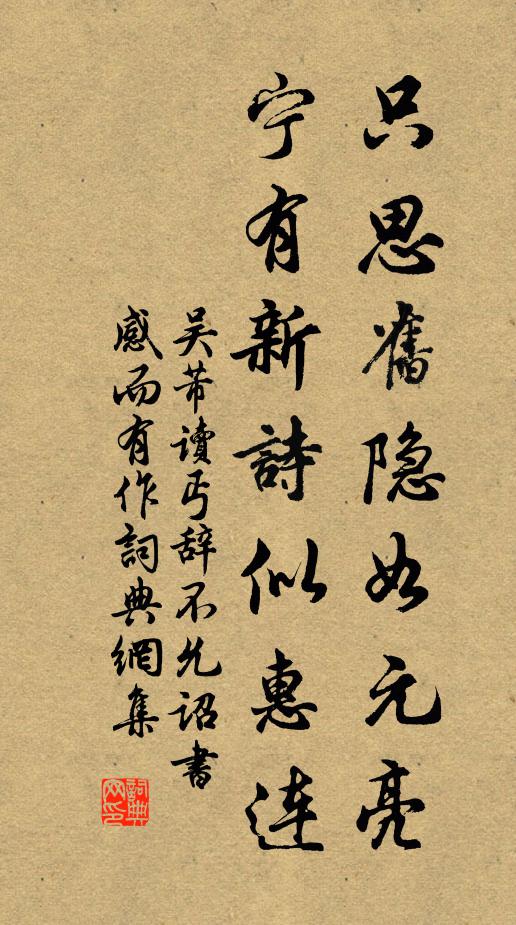 只思舊隐如元亮
宁有新詩似惠连
吴芾讀丐辞不允詔書
感而有作詞典網集
詞典
网印